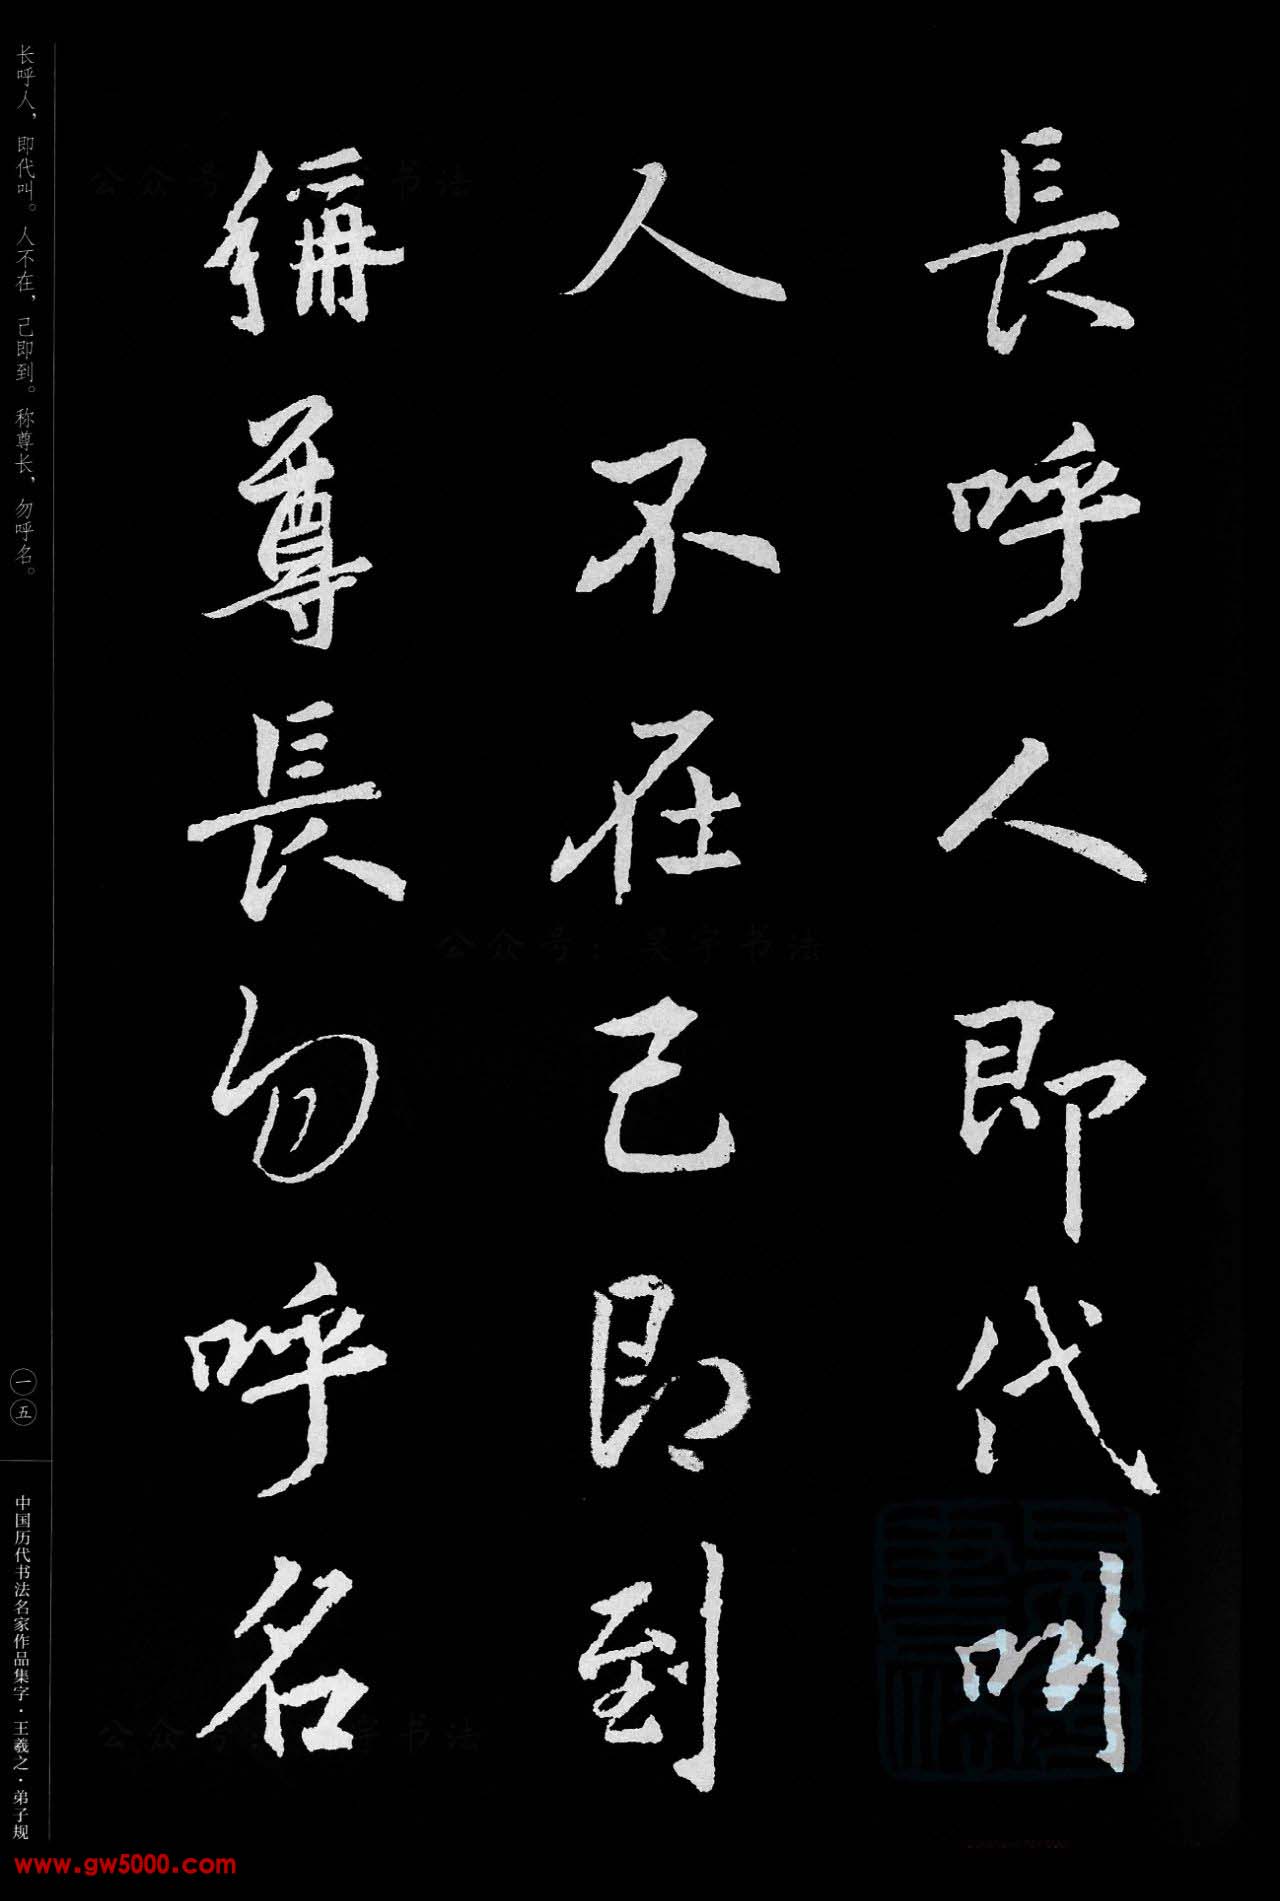 長呼人即代叫
人不在己即到
稱尊長勿呼名
长呼人，即代叫。人不在，己即到。称尊长，勿呼名。
一五
中国历代书法名家作品集字·王羲之·弟子规
公众号
书法
公众号：吴宇书法
公众号
宇书法
www.gw5000.com